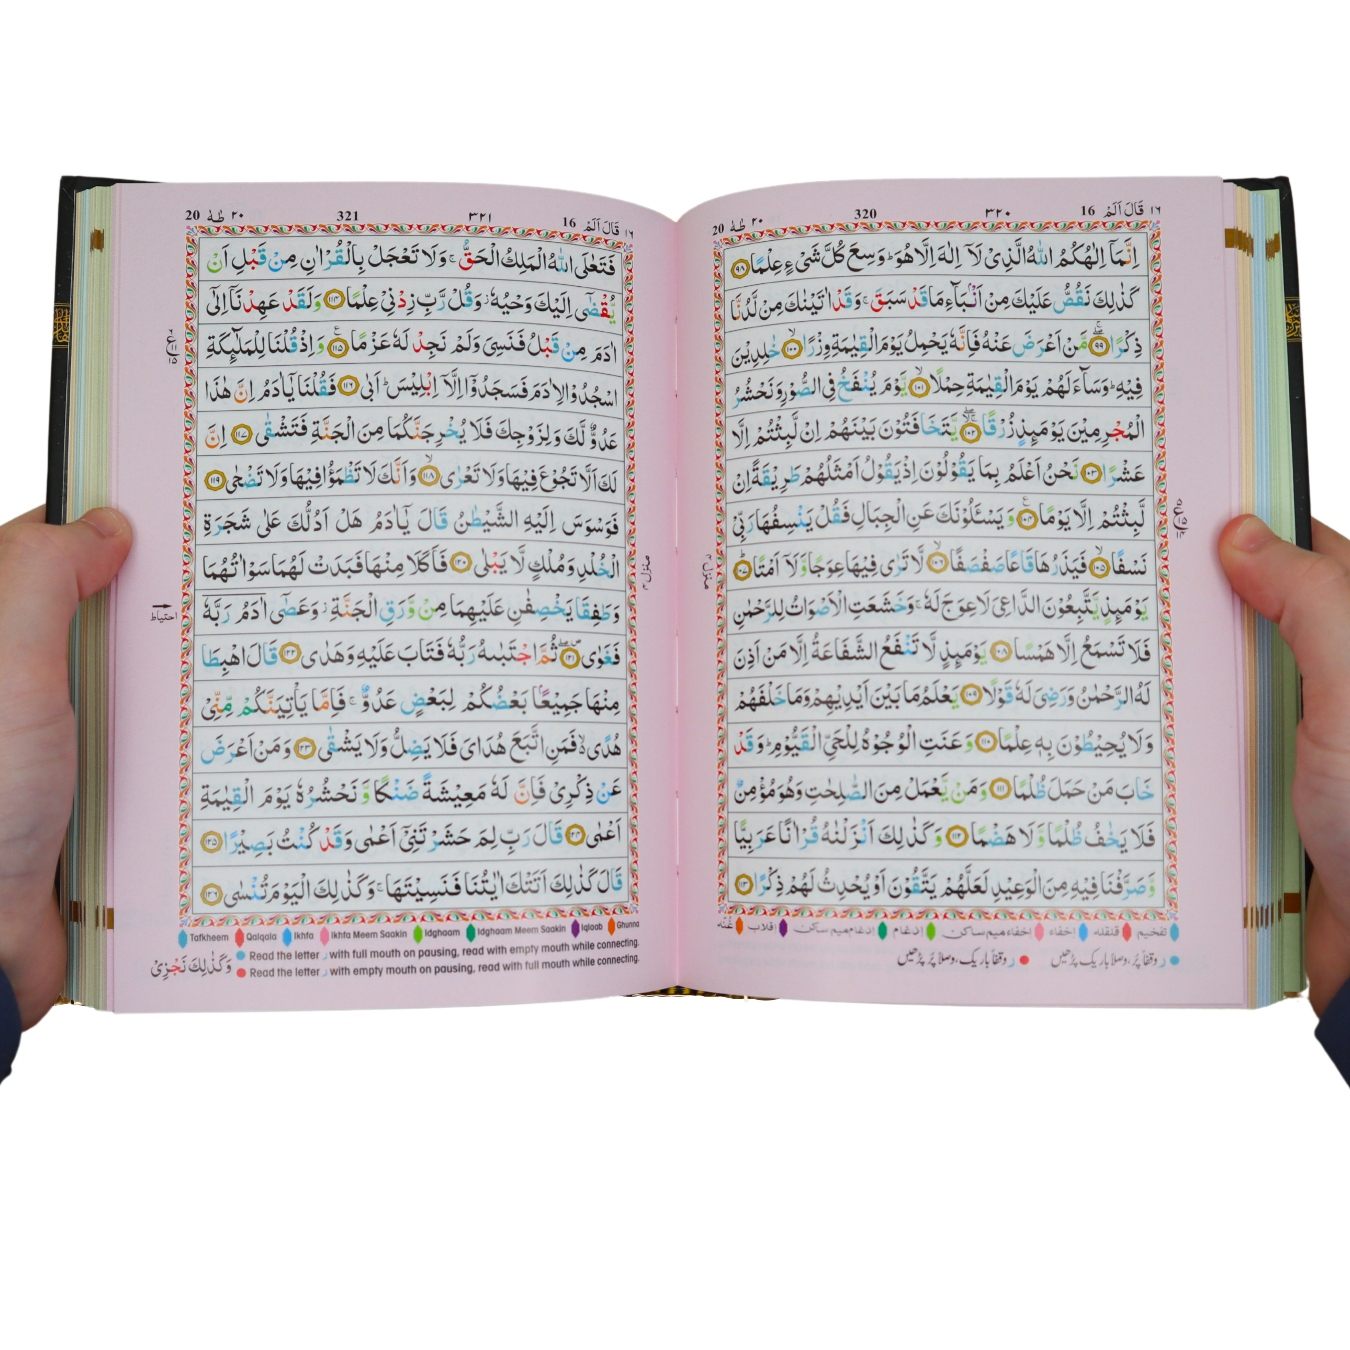 ١٦ قَالَ اَلَمْ 16 ٣٢٠ 320 ٢٠ طٰهٰ 20
اِنَّمَاۤ اِلٰهُكُمُ اللّٰهُ الَّذِىْ لَاۤ اِلٰهَ اِلَّا هُوَ ؕ وَسِعَ كُلَّ شَىْءٍ عِلْمًا ﴿٩٨﴾
كَذٰلِكَ نَقُصُّ عَلَيْكَ مِنْ اَنْۢبَآءِ مَا قَدْ سَبَقَ ۚ وَقَدْ اٰتَيْنٰكَ مِنْ لَّدُنَّا
ذِكْرًا ﴿٩٩﴾ مَنْ اَعْرَضَ عَنْهُ فَاِنَّهٗ يَحْمِلُ يَوْمَ الْقِيٰمَةِ وِزْرًا ﴿١٠٠﴾ خٰلِدِيْنَ
فِيْهِ ؕ وَسَآءَ لَهُمْ يَوْمَ الْقِيٰمَةِ حِمْلًا ﴿١٠١﴾ يَّوْمَ يُنْفَخُ فِى الصُّوْرِ وَنَحْشُرُ
الْمُجْرِمِيْنَ يَوْمَئِذٍ زُرْقًا ﴿١٠٢﴾ يَّتَخَافَتُوْنَ بَيْنَهُمْ اِنْ لَّبِثْتُمْ اِلَّا
عَشْرًا ﴿١٠٣﴾ نَحْنُ اَعْلَمُ بِمَا يَقُوْلُوْنَ اِذْ يَقُوْلُ اَمْثَلُهُمْ طَرِيْقَةً اِنْ
لَّبِثْتُمْ اِلَّا يَوْمًا ﴿١٠٤﴾ وَيَسْـَٔلُوْنَكَ عَنِ الْجِبَالِ فَقُلْ يَنْسِفُهَا رَبِّىْ
نَسْفًا ﴿١٠٥﴾ فَيَذَرُهَا قَاعًا صَفْصَفًا ﴿١٠٦﴾ لَّا تَرٰى فِيْهَا عِوَجًا وَّلَاۤ اَمْتًا ﴿١٠٧﴾
يَوْمَئِذٍ يَّتَّبِعُوْنَ الدَّاعِىَ لَا عِوَجَ لَهٗ ۚ وَخَشَعَتِ الْاَصْوَاتُ لِلرَّحْمٰنِ
فَلَا تَسْمَعُ اِلَّا هَمْسًا ﴿١٠٨﴾ يَوْمَئِذٍ لَّا تَنْفَعُ الشَّفَاعَةُ اِلَّا مَنْ اَذِنَ
لَهُ الرَّحْمٰنُ وَرَضِىَ لَهٗ قَوْلًا ﴿١٠٩﴾ يَعْلَمُ مَا بَيْنَ اَيْدِيْهِمْ وَمَا خَلْفَهُمْ
وَلَا يُحِيْطُوْنَ بِهٖ عِلْمًا ﴿١١٠﴾ وَعَنَتِ الْوُجُوْهُ لِلْحَىِّ الْقَيُّوْمِ ؕ وَقَدْ
خَابَ مَنْ حَمَلَ ظُلْمًا ﴿١١١﴾ وَمَنْ يَّعْمَلْ مِنَ الصّٰلِحٰتِ وَهُوَ مُؤْمِنٌ
فَلَا يَخٰفُ ظُلْمًا وَّلَا هَضْمًا ﴿١١٢﴾ وَكَذٰلِكَ اَنْزَلْنٰهُ قُرْاٰنًا عَرَبِيًّا
وَّصَرَّفْنَا فِيْهِ مِنَ الْوَعِيْدِ لَعَلَّهُمْ يَتَّقُوْنَ اَوْ يُحْدِثُ لَهُمْ ذِكْرًا ﴿١١٣﴾
تفخیم قلقلہ اخفاء اخفاء میم ساکن ادغام ادغام میم ساکن اقلاب غنّہ
ر وقفاً پُر، وصلاً باریک پڑھیں ر وقفاً باریک، وصلاً پُر پڑھیں
منزل ٤
١٦ قَالَ اَلَمْ 16 ٣٢١ 321 ٢٠ طٰهٰ 20
فَتَعٰلَى اللّٰهُ الْمَلِكُ الْحَقُّ ۚ وَلَا تَعْجَلْ بِالْقُرْاٰنِ مِنْ قَبْلِ اَنْ
يُّقْضٰٓى اِلَيْكَ وَحْيُهٗ ؗ وَقُلْ رَّبِّ زِدْنِىْ عِلْمًا ﴿١١٤﴾ وَلَقَدْ عَهِدْنَاۤ اِلٰٓى
اٰدَمَ مِنْ قَبْلُ فَنَسِىَ وَلَمْ نَجِدْ لَهٗ عَزْمًا ﴿١١٥﴾ وَاِذْ قُلْنَا لِلْمَلٰٓئِكَةِ
اسْجُدُوْا لِاٰدَمَ فَسَجَدُوْۤا اِلَّاۤ اِبْلِيْسَ ؕ اَبٰى ﴿١١٦﴾ فَقُلْنَا يٰۤاٰدَمُ اِنَّ هٰذَا
عَدُوٌّ لَّكَ وَلِزَوْجِكَ فَلَا يُخْرِجَنَّكُمَا مِنَ الْجَنَّةِ فَتَشْقٰى ﴿١١٧﴾ اِنَّ
لَكَ اَلَّا تَجُوْعَ فِيْهَا وَلَا تَعْرٰى ﴿١١٨﴾ وَاَنَّكَ لَا تَظْمَؤُا فِيْهَا وَلَا تَضْحٰى ﴿١١٩﴾
فَوَسْوَسَ اِلَيْهِ الشَّيْطٰنُ قَالَ يٰۤاٰدَمُ هَلْ اَدُلُّكَ عَلٰى شَجَرَةِ
الْخُلْدِ وَمُلْكٍ لَّا يَبْلٰى ﴿١٢٠﴾ فَاَكَلَا مِنْهَا فَبَدَتْ لَهُمَا سَوْاٰتُهُمَا
وَطَفِقَا يَخْصِفٰنِ عَلَيْهِمَا مِنْ وَّرَقِ الْجَنَّةِ ؗ وَعَصٰٓى اٰدَمُ رَبَّهٗ
فَغَوٰى ﴿١٢١﴾ ثُمَّ اجْتَبٰىهُ رَبُّهٗ فَتَابَ عَلَيْهِ وَهَدٰى ﴿١٢٢﴾ قَالَ اهْبِطَا
مِنْهَا جَمِيْعًۢا بَعْضُكُمْ لِبَعْضٍ عَدُوٌّ ۚ فَاِمَّا يَاْتِيَنَّكُمْ مِّنِّىْ
هُدًى ۙ فَمَنِ اتَّبَعَ هُدَاىَ فَلَا يَضِلُّ وَلَا يَشْقٰى ﴿١٢٣﴾ وَمَنْ اَعْرَضَ
عَنْ ذِكْرِىْ فَاِنَّ لَهٗ مَعِيْشَةً ضَنْكًا وَّنَحْشُرُهٗ يَوْمَ الْقِيٰمَةِ
اَعْمٰى ﴿١٢٤﴾ قَالَ رَبِّ لِمَ حَشَرْتَنِىْۤ اَعْمٰى وَقَدْ كُنْتُ بَصِيْرًا ﴿١٢٥﴾
قَالَ كَذٰلِكَ اَتَتْكَ اٰيٰتُنَا فَنَسِيْتَهَا ۚ وَكَذٰلِكَ الْيَوْمَ تُنْسٰى ﴿١٢٦﴾
Tafkheem Qalqala Ikhfa Ikhfa Meem Saakin Idghaam Idghaam Meem Saakin Iqlaab Ghunna
Read the letter ر with full mouth on pausing, read with empty mouth while connecting.
Read the letter ر with empty mouth on pausing, read with full mouth while connecting.
وَكَذٰلِكَ نَجْزِىْ
منزل ٤
احتیاط